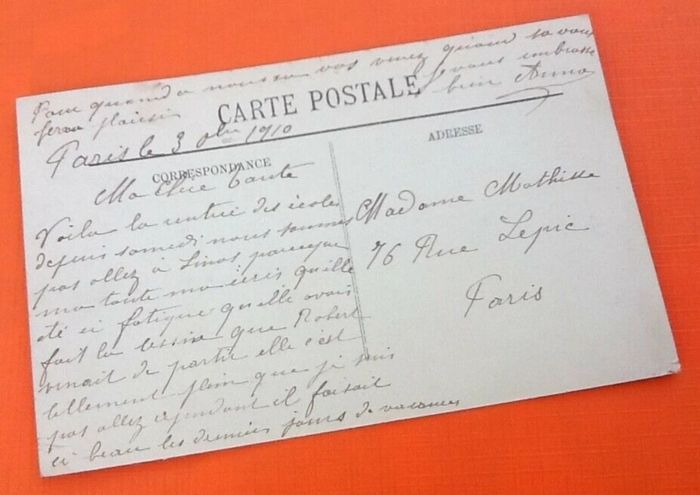 Pour quand a nous vos venez quand sa vous
feron plaisir vous embrasse
bien Anna
CARTE POSTALE
Paris le 3 obre 1910
CORRESPONDANCE
ADRESSE
Ma chere tante
Voila la rentré des écoles
depuis samedi nous sommes
pas allez à parceque
ma tante ma écris qu'elle
été si fatigue qu'elle avais
fait la lessive que Robert
venait de partir elle c'est
tellement plein que je suis
pas allez cependant il faisait
si beau les derniers jours de vacances
Madame Mathisse
76 Rue Lepic
Paris